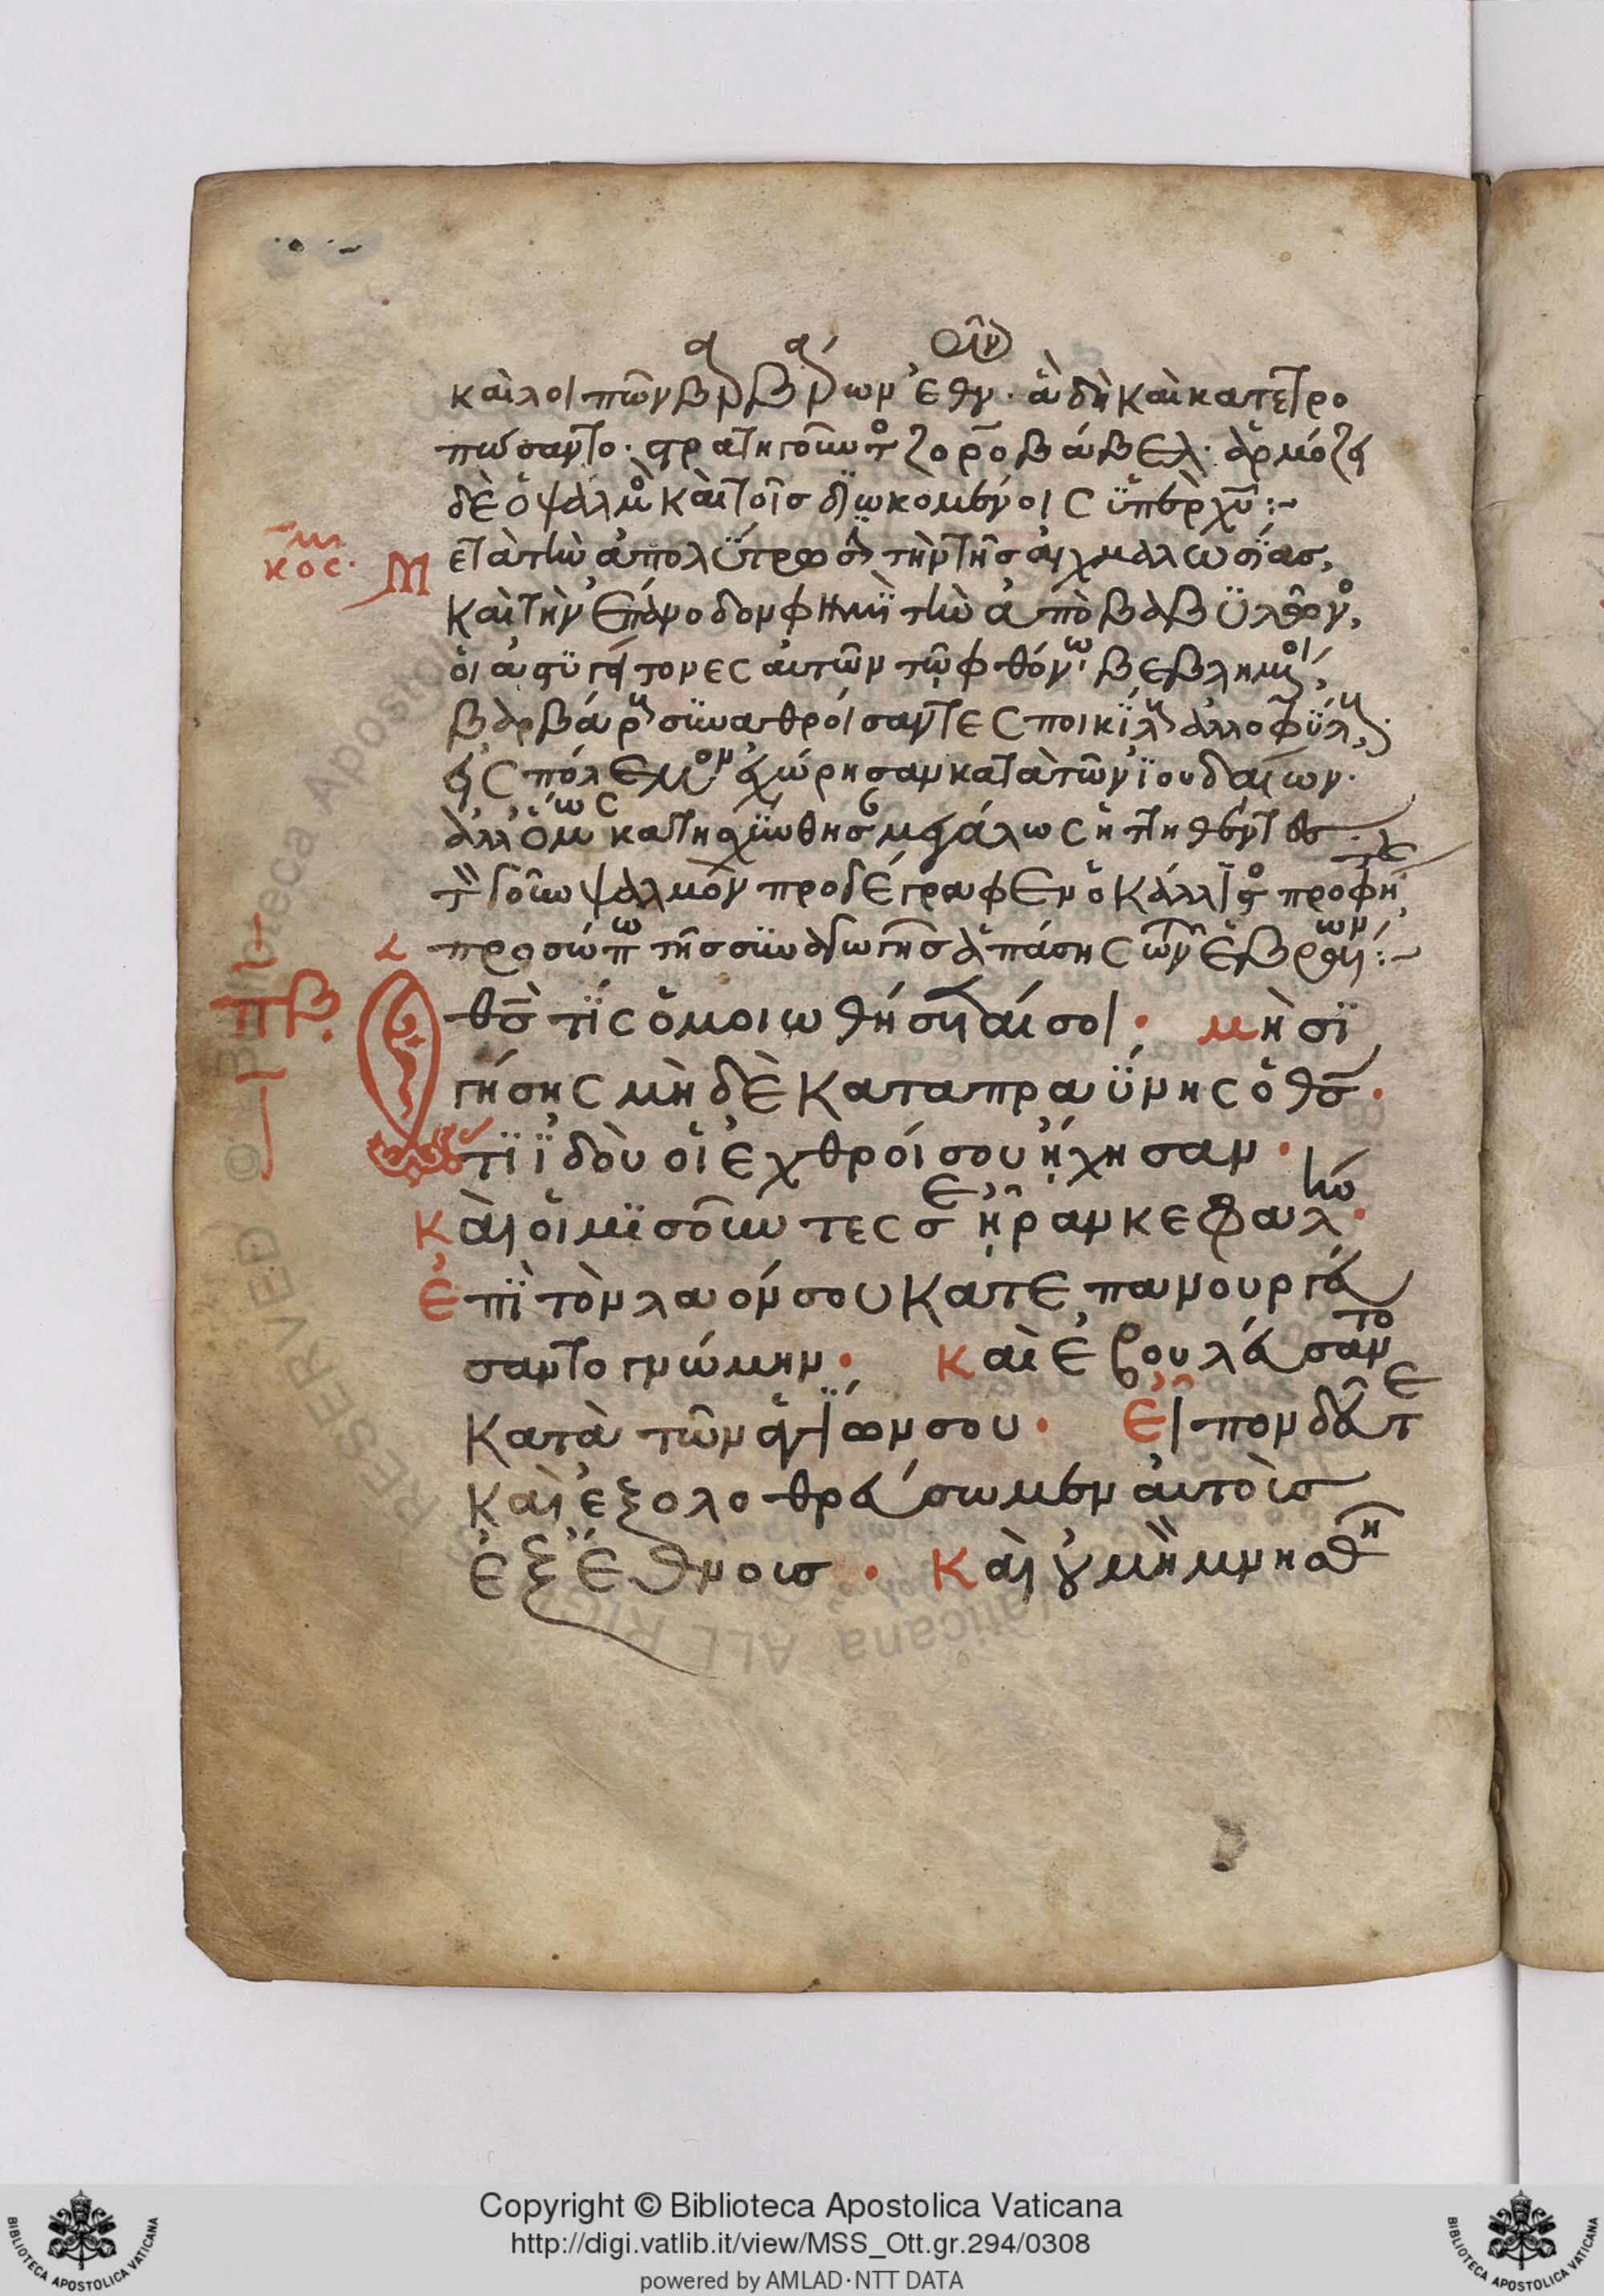 καὶ λοιπῶν βαρβάρων ἐθν· ἃ δὴ καὶ κατετρο
πώσαντο· στρατηγοῦντος ζοροβάβελ· ἁρμόζει
δὲ ὁ ψαλμὸς καὶ τοῖς διωκομένοις ὑπὲρ χυ :~
Μετὰ τὴν ἀπολύτρωσιν τὴν τῆς αἰχμαλωσίας,
κος·
καὶ τὴν ἐπάνοδον φημὶ τὴν ἀπὸ βαβυλῶνος,
οἱ ἀστυγείτονες αὐτῶν τῷ φθόνῳ βεβλημένοι,
βαρβάροις συναθροίσαντες ποικίλοις ἀλλοφύλοις·
εἰς πόλεμον ἐχώρησαν κατὰ τῶν ἰουδαίων·
ἀλλ' ὅμως κατησχύνθησαν μεγάλως ἡττηθέντες·
τοῦτον ψαλμὸν προδέγραφεν ὁ κάλλιστος προφήτης
προσώπῳ τῆς συναγωγῆς ἁπάσης τῶν ἑβραίων :~
πβ·
Ὁ θς τίς ὁμοιωθήσεταί σοι· μὴ σι
γήσης μὴ δὲ καταπραΰνης ὁ θς·
Ὅτι ἰδοὺ οἱ ἐχθροί σου ἤχησαν·
Καὶ οἱ μισοῦντες σε ἦραν κεφαλήν·
Ἐπὶ τὸν λαόν σου κατεπανουργεύ
σαντο γνώμην· Καὶ ἐβουλεύσαντο
κατὰ τῶν ἁγίων σου· Εἶπον δεῦτε
καὶ ἐξολοθρεύσωμεν αὐτοὺς
ἐξ ἔθνους· Καὶ οὐ μὴ μνησθῆ
Copyright © Biblioteca Apostolica Vaticana
http://digi.vatlib.it/view/MSS_Ott.gr.294/0308
powered by AMLAD·NTT DATA
BIBLIOTECA APOSTOLICA VATICANA
BIBLIOTECA APOSTOLICA VATICANA